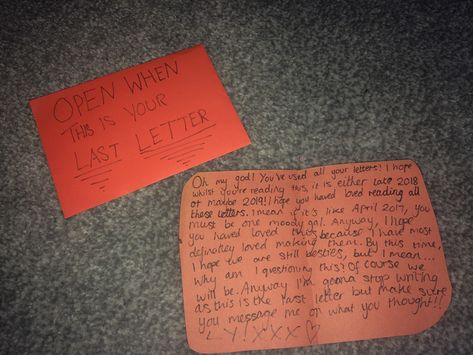 OPEN WHEN
THIS IS YOUR
LAST LETTER
Oh my god! You've used all your letters! I hope
whilst you're reading this, it is either late 2018
or maybe 2019! I hope you haved loved reading all
these letters. I mean if it's like April 2017, you
must be one moody gal. Anyway, I hope
you haved loved this because I have most
definatley loved making them. By this time,
I hope we are still besties, but I mean...
Why am I questioning this? Of course we
will be. Anyway I'm gonna stop writing
as this is the last letter but make sure
you message me on what you thought!!
LY! XXX ♡